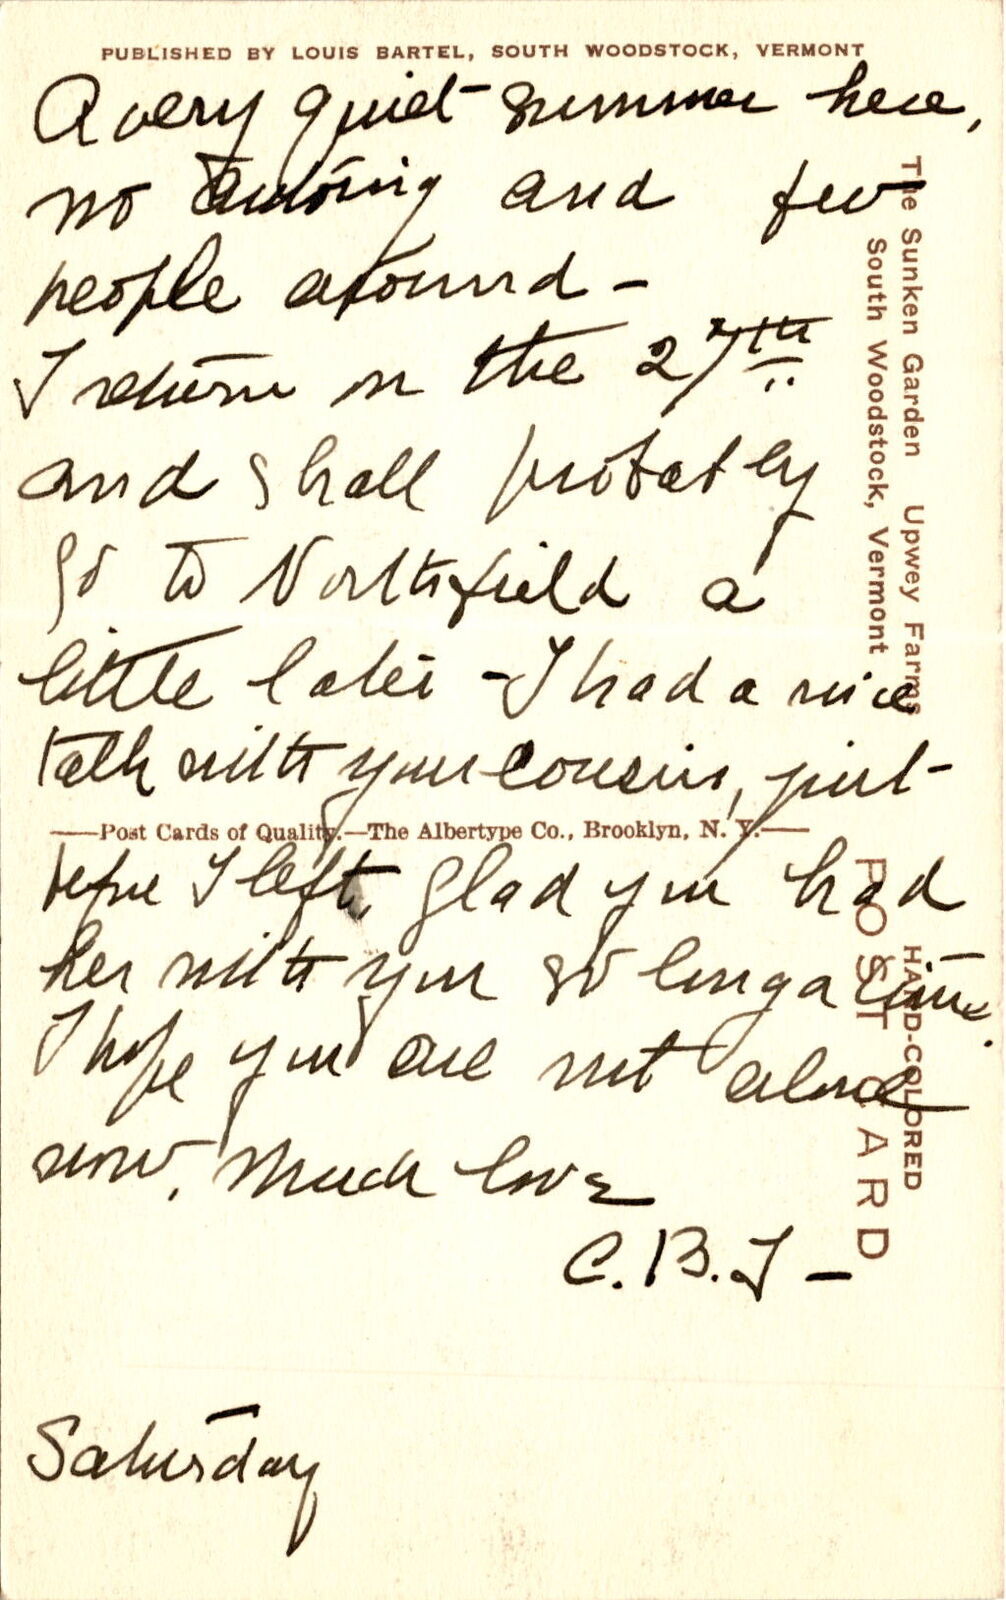 PUBLISHED BY LOUIS BARTEL, SOUTH WOODSTOCK, VERMONT
A very quiet summer here,
no autoing and few
people around -
I return on the 27th
and shall probably
go to Northfield a
little later - I had a nice
talk with your cousin, just
before I left, glad you had
her with you so long a time.
I hope you are not alone
now. Much love
C. B. T -
Saturday
The Sunken Garden Upwey Farms
South Woodstock, Vermont
Post Cards of Quality.—The Albertype Co., Brooklyn, N. Y.
POST CARD
HAND-COLORED